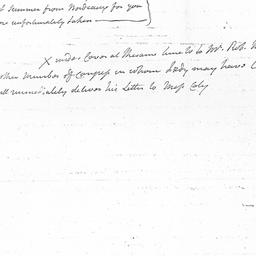 Summer from Bordeaux for you
unfortunately taken
X under Cover at the same time to Mr. Rob.
other member of Congress in whom Lady may have
immediately deliver his Letter to Mess